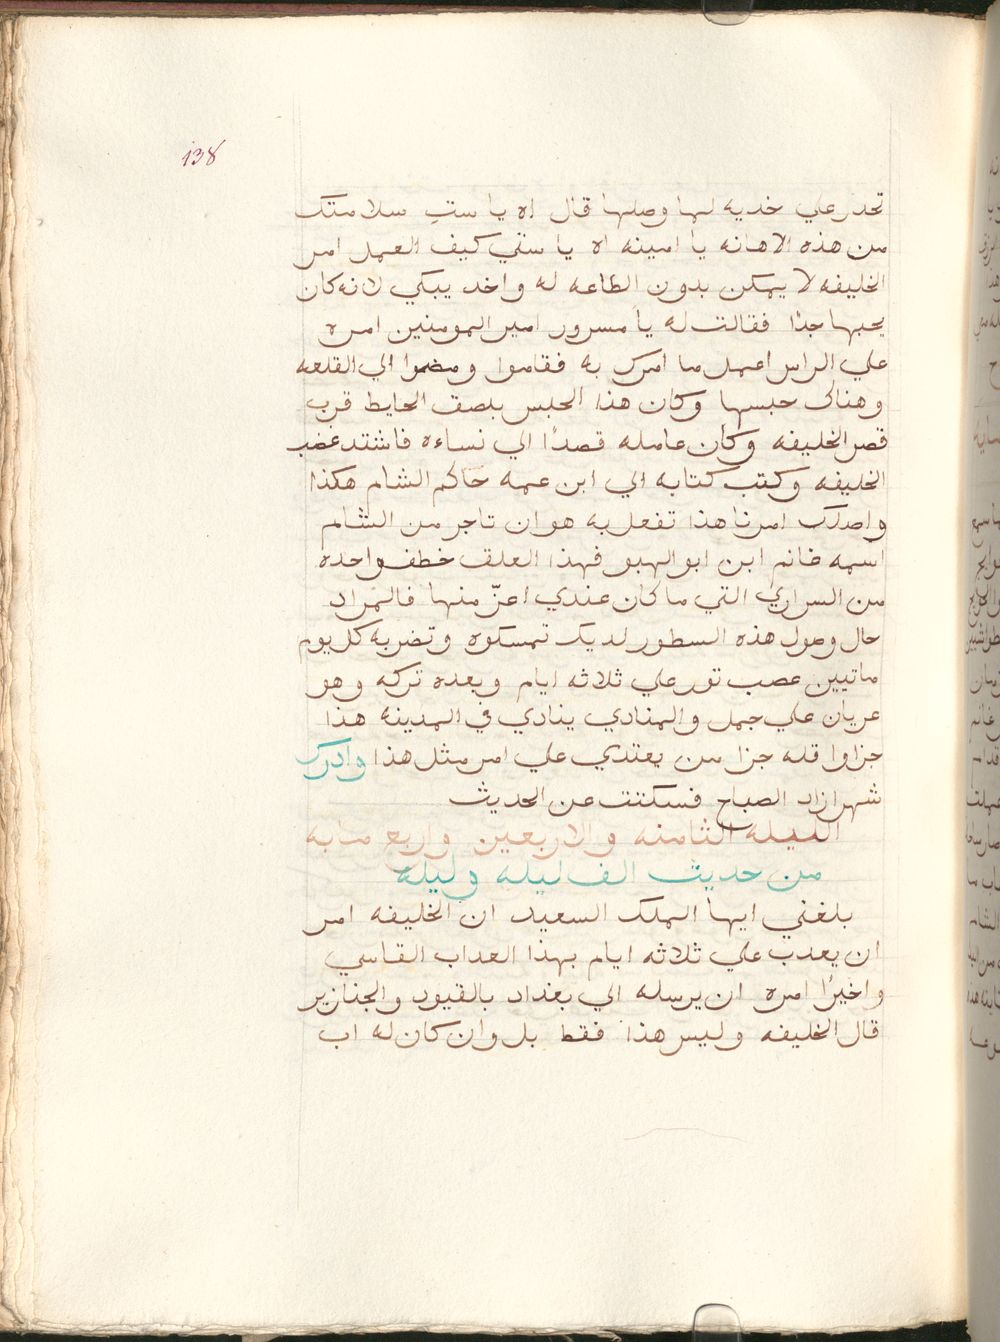 138
تحدر علي خديه لها وصلها قال اه يا ستي سلامتك
من هذه الاهانه يا امينه اه يا ستي كيف العمل امر
الخليفه لا يمكن بدون الطاعه له واخد يبكي لانه كان
يحبها جدًا فقالت له يا مسرور امير المومنين امره
علي الراس اعمل ما امرك به فقاموا ومضوا الي القلعه
وهناك حبسها وكان هذا الحبس بلصق الحايط قرب
قصر الخليفه وكان عامله قصدًا الي نساءه فاشتد غضب
الخليفه وكتب كتابه الي ابن عمه حاكم الشام هكذا
واصلك امرنا هذا تفعل به هو ان تاجر من الشام
اسمه غانم ابن ابو الهبو فهذا العلق خطف واحده
من السراري التي ما كان عندي اعزّ منها فالمراد
حال وصول هذه السطور لديك تمسكوه وتضربه كل يوم
ماتيين عصب تور علي ثلاثه ايام وبعده تركه وهو
عريان علي جمل والمنادي ينادي في المدينه هذا
جزاوا قله جزا من يعتدي علي امر مثل هذا وادرك
شهرازاد الصباح فسكتت عن الحديث
الليله الثامنه والاربعين واربع مايه
من حديث الف ليله وليله
بلغني ايها الملك السعيد ان الخليفه امر
ان يعدب علي ثلاثه ايام بهذا العداب القاسي
واخيرًا امره ان يرسله الي بغداد بالقيود والجنازير
قال الخليفه وليس هذا فقط بل وان كان له اب